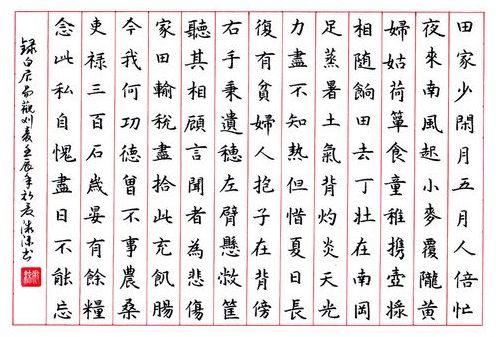 田家少閑月五月人倍忙
夜來南風起小麥覆隴黄
婦姑荷簞食童稚携壺漿
相隨餉田去丁壯在南岡
足蒸暑土氣背灼炎天光
力盡不知熱但惜夏日長
復有貧婦人抱子在背傍
右手秉遺穗左臂懸敝筐
聽其相顧言聞者為悲傷
家田輸稅盡拾此充飢腸
今我何功德曾不事農桑
吏禄三百石歲晏有餘糧
念此私自愧盡日不能忘
録白居易觀刈麦壬辰年初夏書